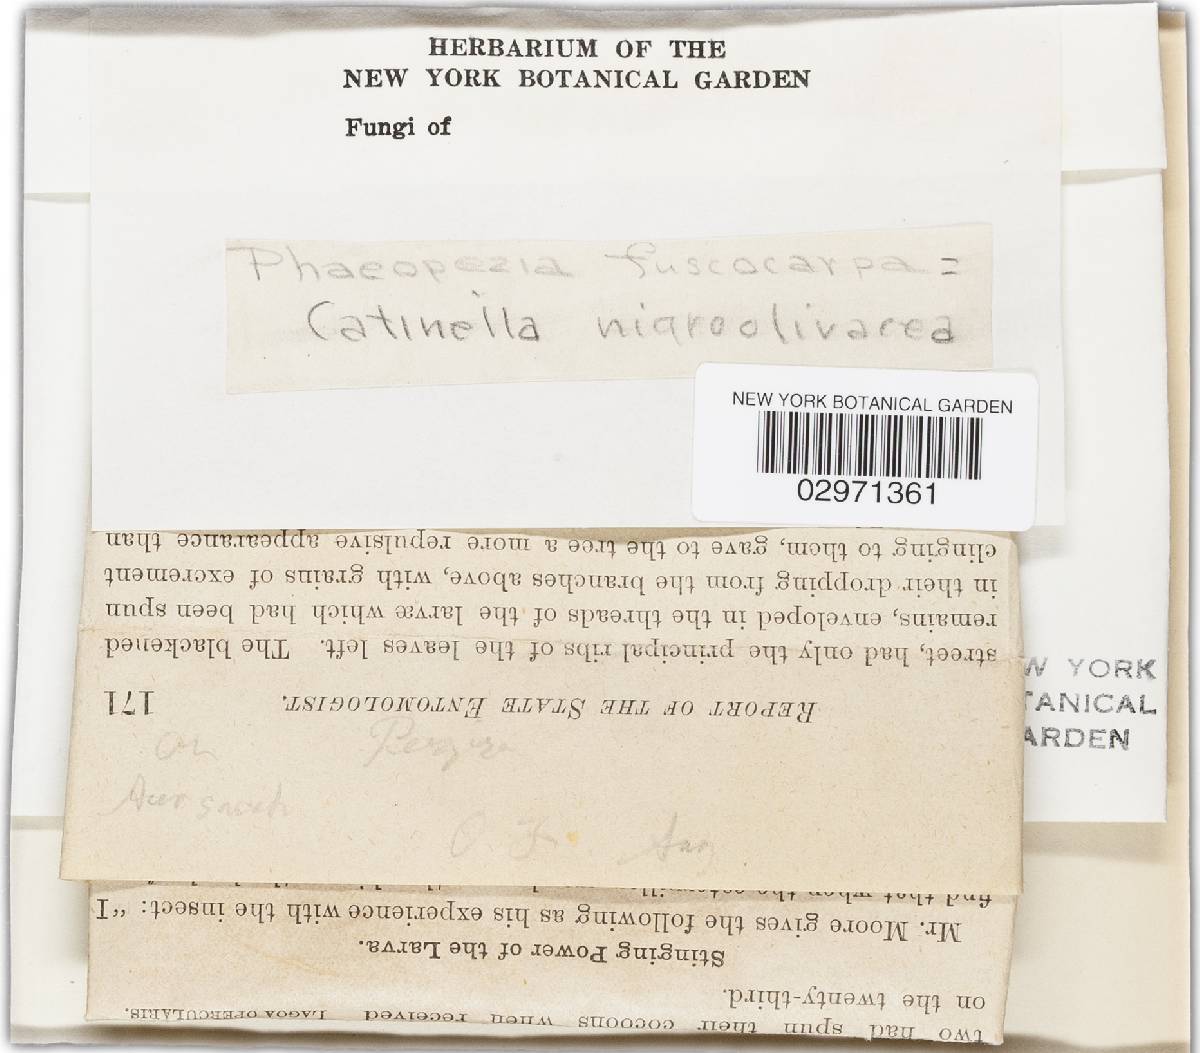 HERBARIUM OF THE
NEW YORK BOTANICAL GARDEN
Fungi of
Phaeopezia fuscocarpa =
Catinella nigroolivacea
NEW YORK BOTANICAL GARDEN
02971361
W YORK
TANICAL
ARDEN
REPORT OF THE STATE ENTOMOLOGIST. 171
street, had only the principal ribs of the leaves left. The blackened
remains, enveloped in the threads of the larvæ which had been spun
in their dropping from the branches above, with grains of excrement
clinging to them, gave to the tree a more repulsive appearance than
on Peziza
Acer
O. F.
two had spun their cocoons when received LAGOA OPERCULARIS.
on the twenty-third.
Stinging Power of the Larva.
Mr. Moore gives the following as his experience with the insect: "I
find that when the